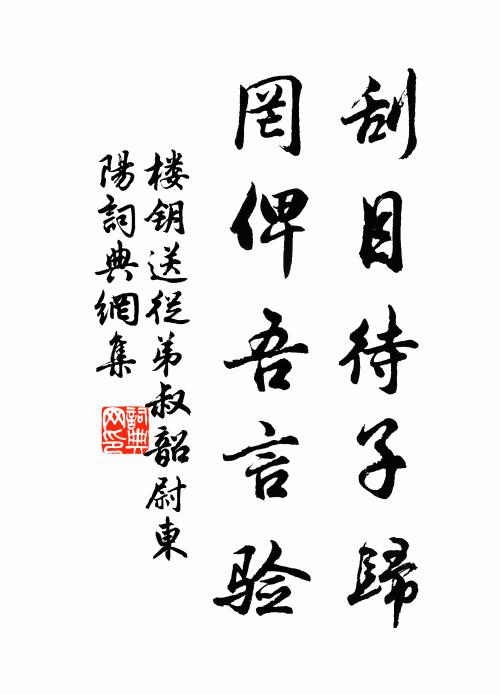 刮目待子歸
罔俾吾言验
楼钥送從弟叔韶尉東
陽詞典網集
詞典
网印